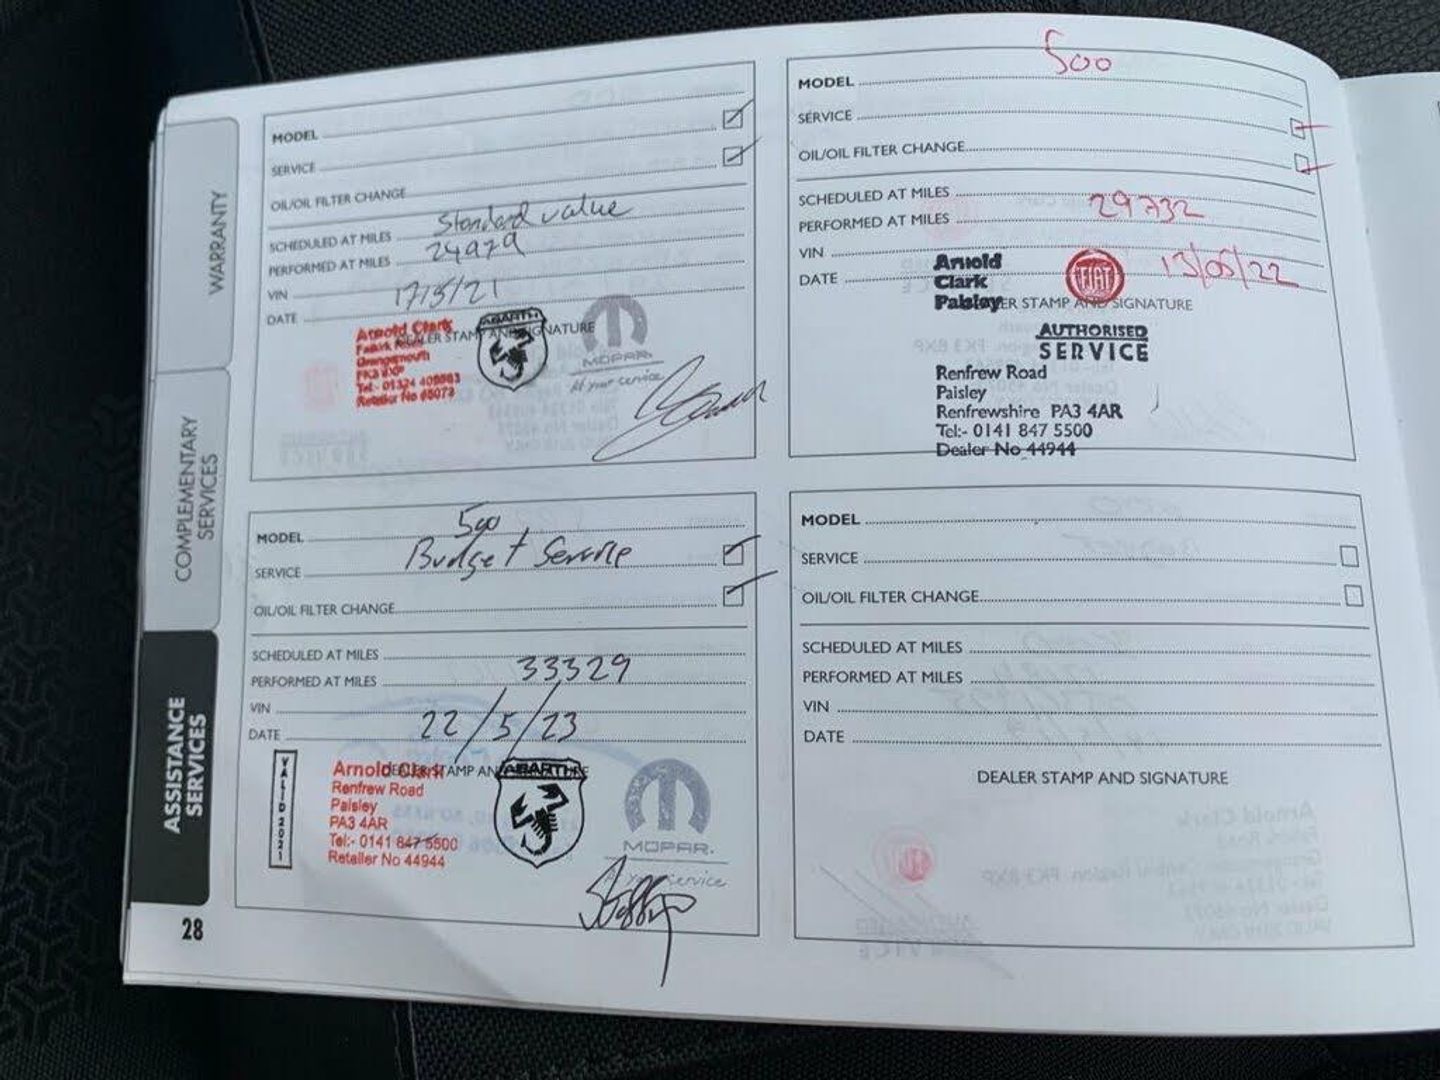 WARRANTY
COMPLEMENTARY
SERVICES
ASSISTANCE
SERVICES
28
MODEL
SERVICE
OIL/OIL FILTER CHANGE
Standard value
SCHEDULED AT MILES
24979
PERFORMED AT MILES
VIN
17/5/21
DATE
DEALER STAMP AND SIGNATURE
Arnold Clark
Falkirk Road
Grangemouth
FK3 8XP
Tel:- 01324 409563
Retailer No 65073
ABARTH
MOPAR.
At your service
500
MODEL
SERVICE
OIL/OIL FILTER CHANGE
SCHEDULED AT MILES
29732
PERFORMED AT MILES
VIN
DATE
13/05/22
Arnold
Clark
Paisley
FIAT
DEALER STAMP AND SIGNATURE
AUTHORISED
SERVICE
Renfrew Road
Paisley
Renfrewshire PA3 4AR
Tel:- 0141 847 5500
Dealer No 44944
500
MODEL
Budget Service
SERVICE
OIL/OIL FILTER CHANGE
SCHEDULED AT MILES
33329
PERFORMED AT MILES
VIN
22/5/23
DATE
VALID 2021
DEALER STAMP AND SIGNATURE
Arnold Clark
Renfrew Road
Paisley
PA3 4AR
Tel:- 0141 847 5500
Retailer No 44944
ABARTH
MOPAR.
At your service
MODEL
SERVICE
OIL/OIL FILTER CHANGE
SCHEDULED AT MILES
PERFORMED AT MILES
VIN
DATE
DEALER STAMP AND SIGNATURE